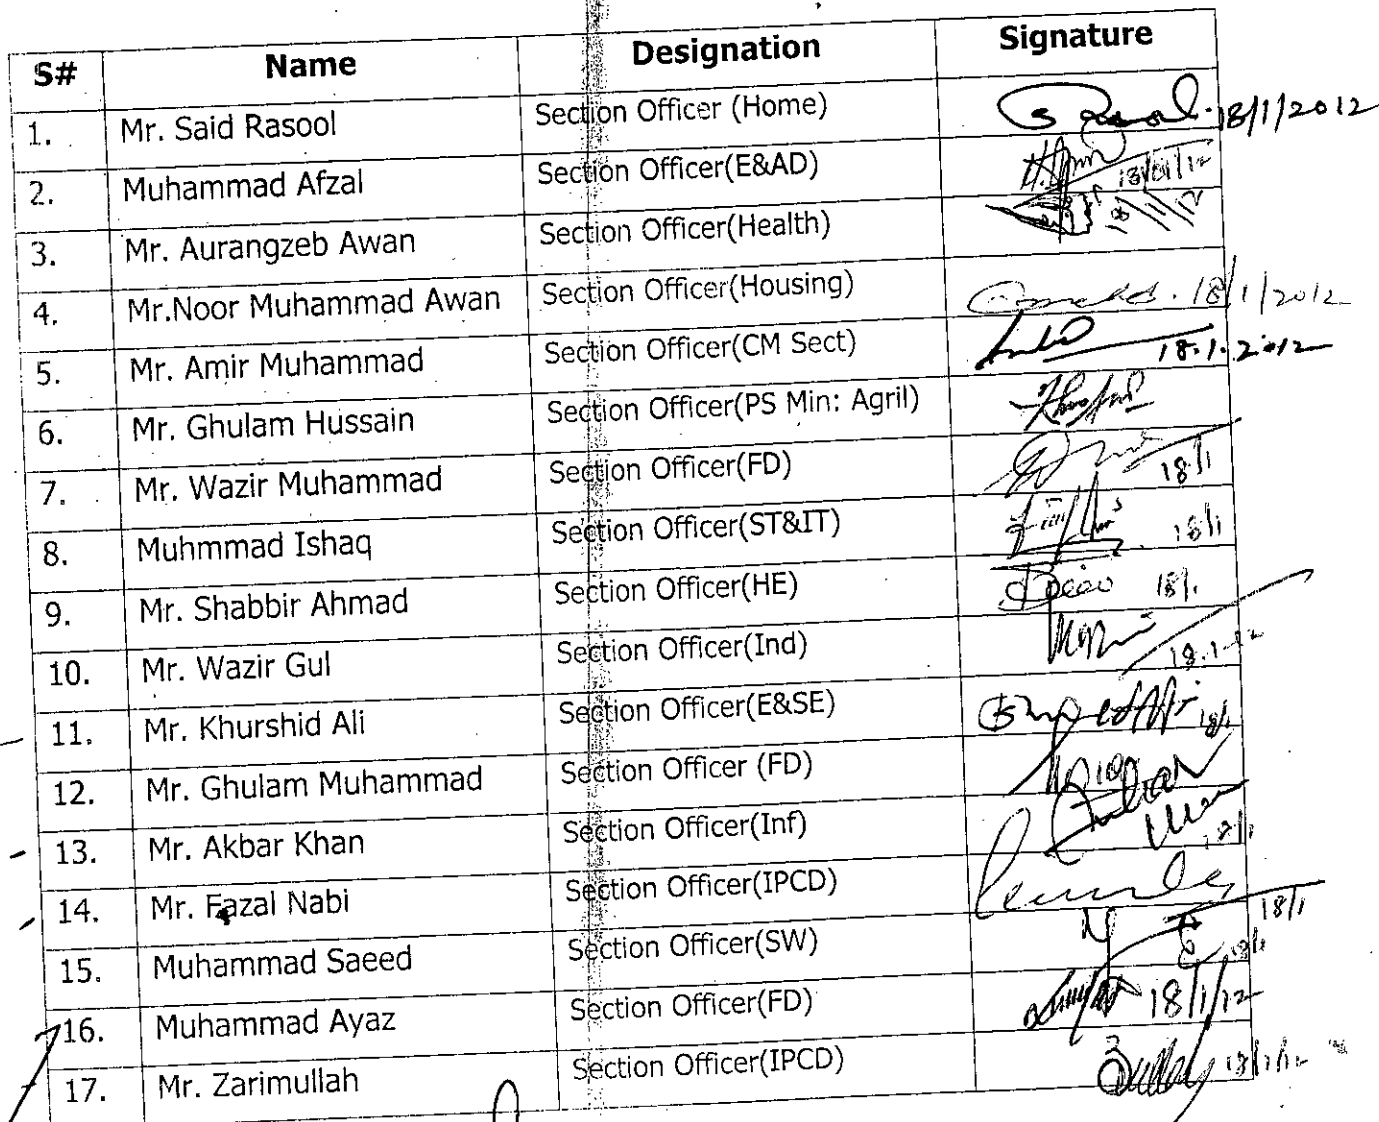 S# Name Designation Signature
1. Mr. Said Rasool Section Officer (Home) S Rasool. 18/1/2012
2. Muhammad Afzal Section Officer(E&AD) 18/01/12
3. Mr. Aurangzeb Awan Section Officer(Health) 18/1/12
4. Mr.Noor Muhammad Awan Section Officer(Housing) 18/1/2012
5. Mr. Amir Muhammad Section Officer(CM Sect) 18.1.2012
6. Mr. Ghulam Hussain Section Officer(PS Min: Agril)
7. Mr. Wazir Muhammad Section Officer(FD) 18/1
8. Muhmmad Ishaq Section Officer(ST&IT) 18/1
9. Mr. Shabbir Ahmad Section Officer(HE) 18/1
10. Mr. Wazir Gul Section Officer(Ind) 18.1.12
11. Mr. Khurshid Ali Section Officer(E&SE) 18/1
12. Mr. Ghulam Muhammad Section Officer (FD)
13. Mr. Akbar Khan Section Officer(Inf) 18/1
14. Mr. Fazal Nabi Section Officer(IPCD) 18/1
15. Muhammad Saeed Section Officer(SW) 18/1
16. Muhammad Ayaz Section Officer(FD) 18/1/12
17. Mr. Zarimullah Section Officer(IPCD) 18/1/12